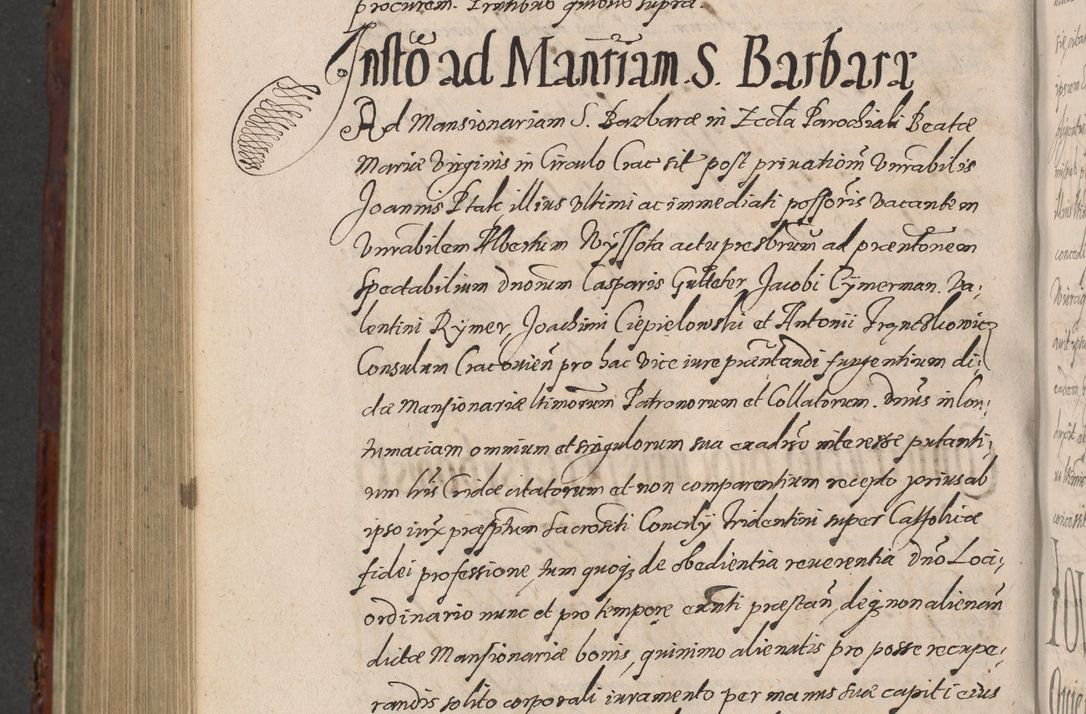 procurem. Prntibus quibus supra
Instõ ad Mansriam S. Barbaræ
Ad Mansionariam S. Barbaræ in Eccła Parochiali Beatæ
Mariæ Virginis in Circulo Crac sit post priuationem Vnrabilis
Joannis Ptak illius Vltimi ac immediati possoris vacantem
Vnrabilem Albertum Wyssota actu presbrum ad præntonem
Spectabilium Dnorum Casparis Gutteter, Jacobi Cymerman, Va-
lentini Rymer, Joachimi Ciepielowski et Antonii Franckowicz
Consulum Cracouien pro hac vice iure præntandi fungentium di-
ctæ Mansionariæ ltimorum Patronorum et Collatorum. Dnus in Con-
tumaciam omnium et singulorum sua exaduo interesse putanti-
um lris Cridæ citatorum et non comparentium recepto prius ab
ipso iux præsptum Sacrosscti Concilij Tridentini super Catholicæ
fidei professione, tum quoq de obedientia reuerentia Dno Loci
ordinario nunc et pro tempore exnti præstan, deq non alienan
dictæ Mansionariæ bonis, quinimo alienatis pro posse recupe-
randis solito corporali iuramento per manus suæ capiti eius